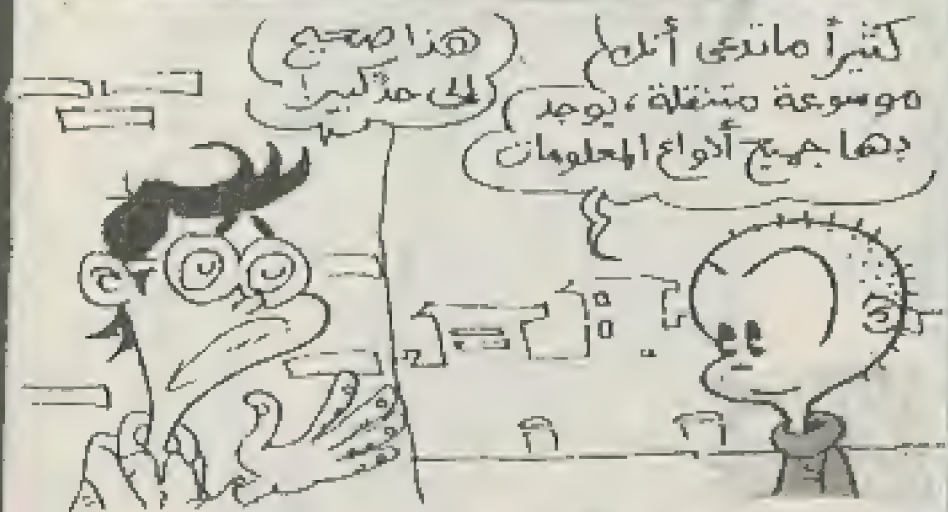 كثيراً ماتدعى أنك
موسوعة متنقلة، يوجد
بها جميع أنواع المعلومات
هذا صحيح
إلى حد كبير